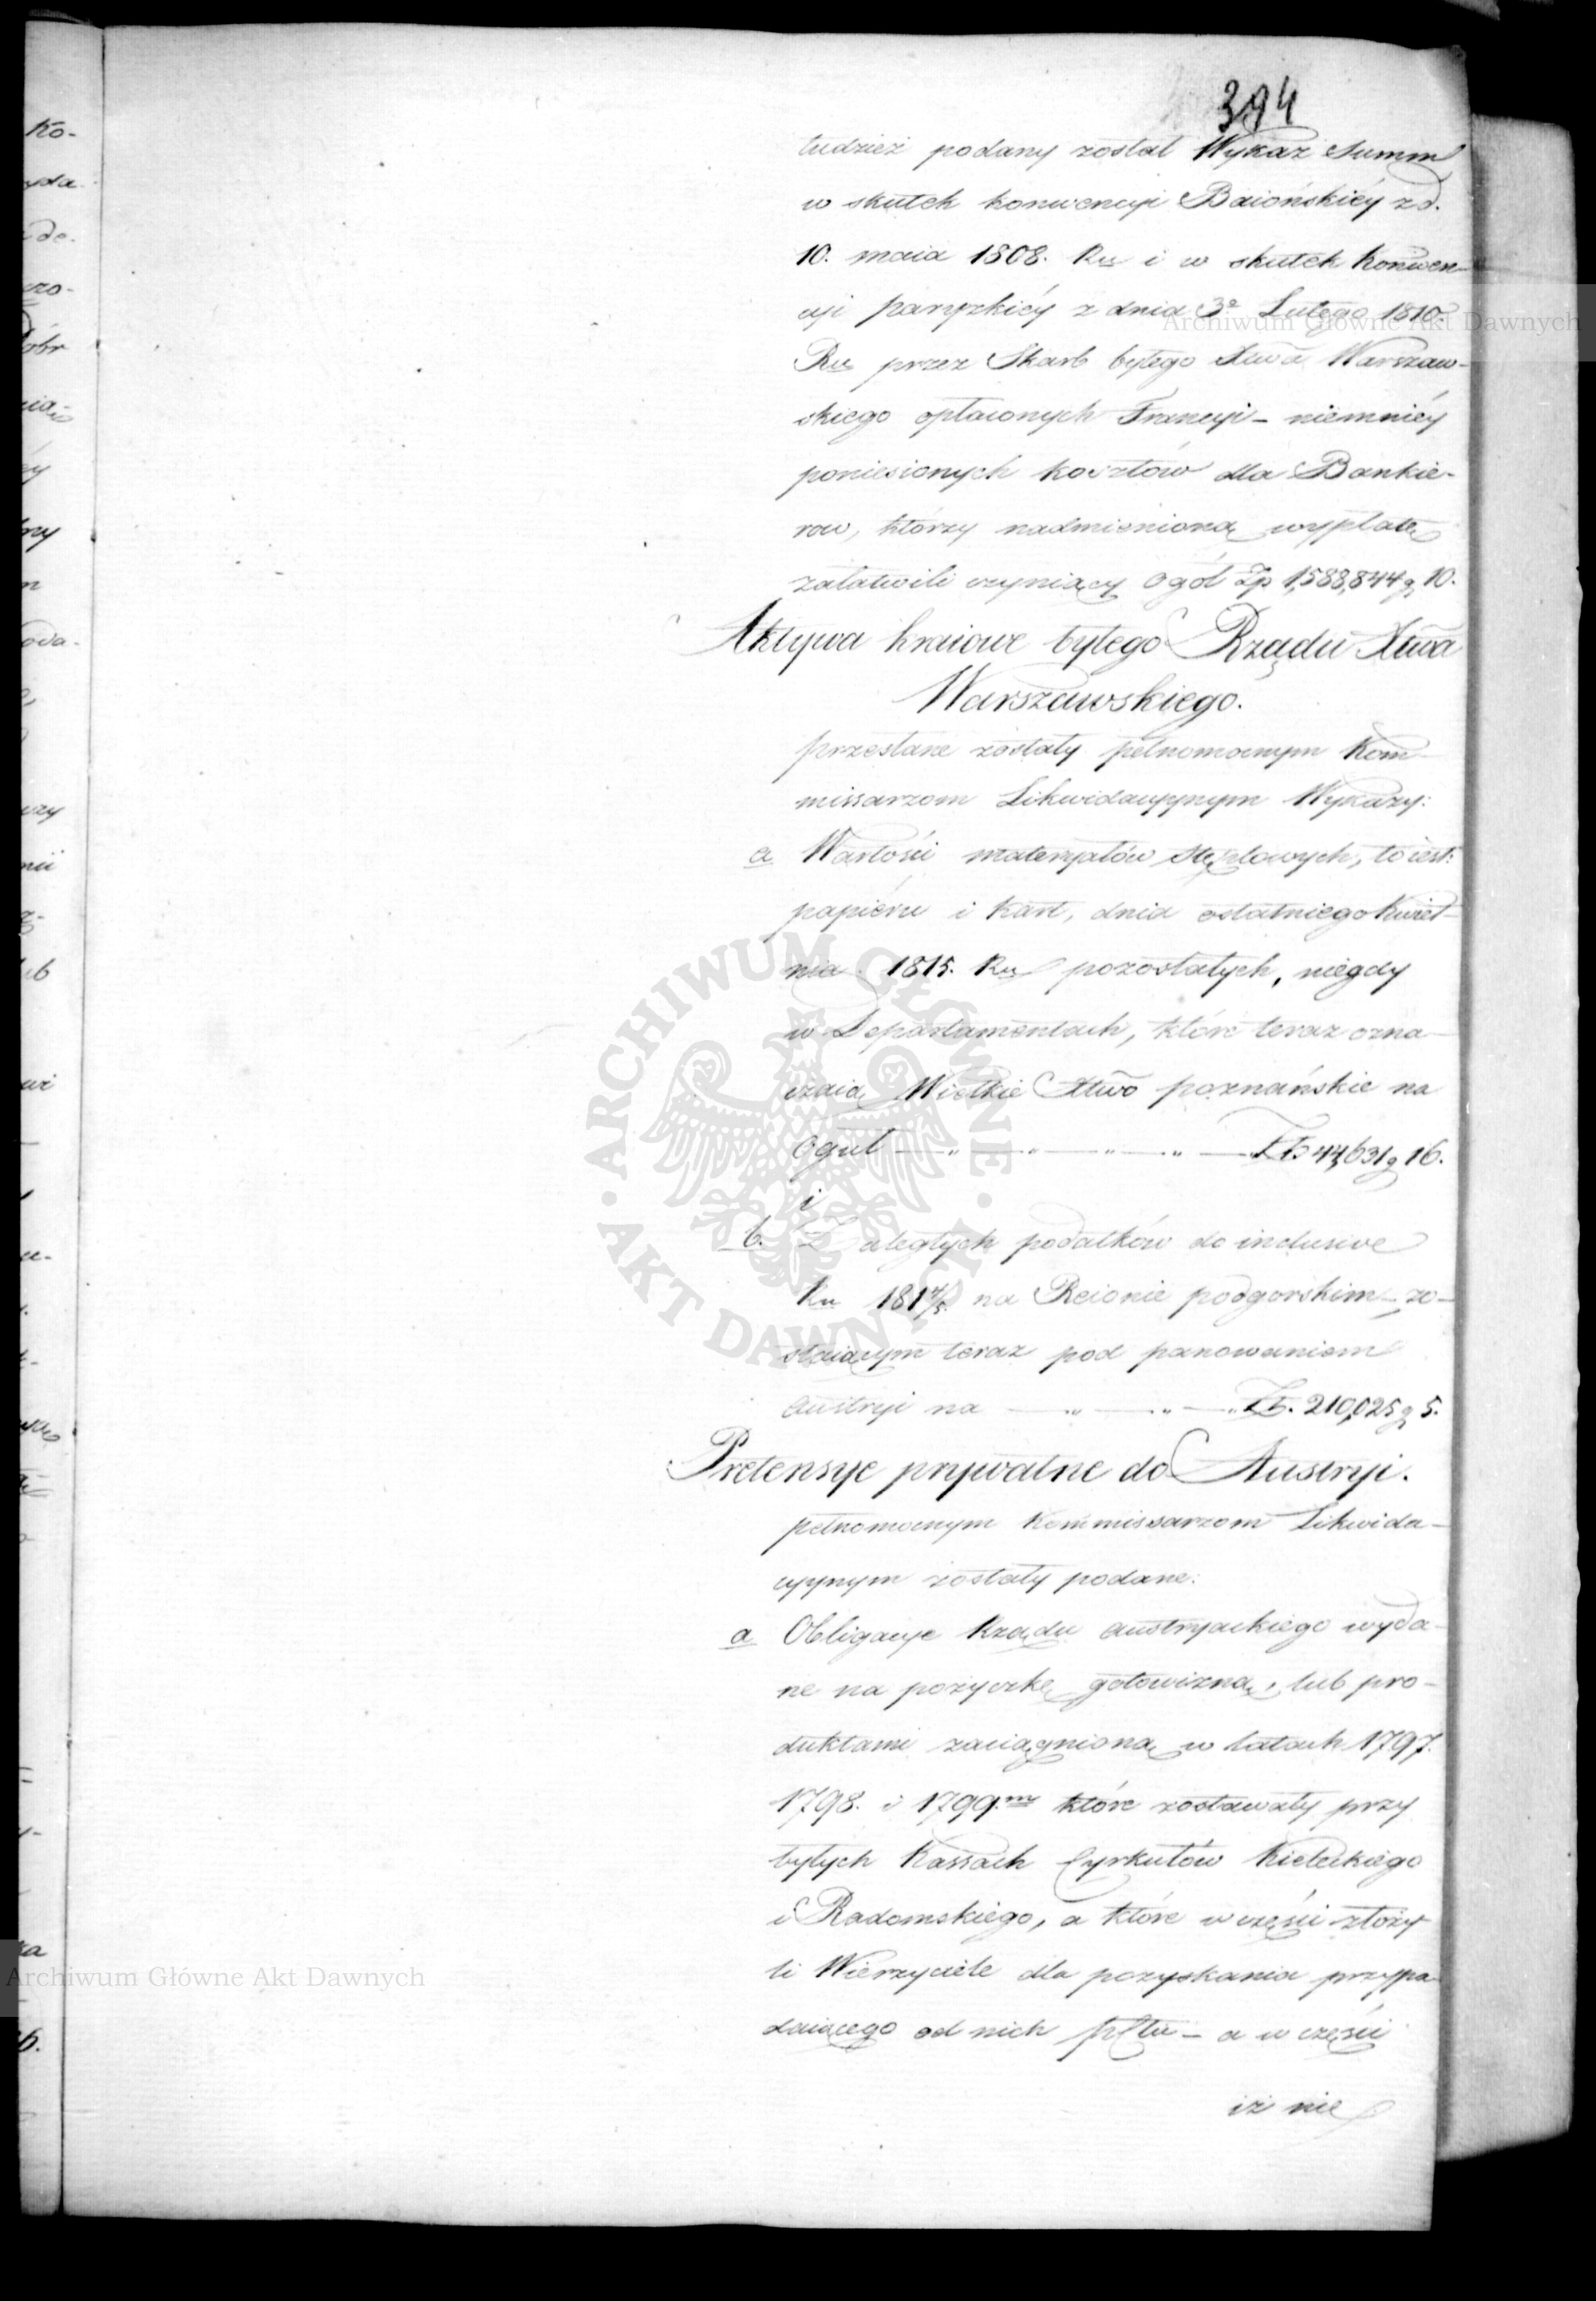 394
tudzież podany został Wykaz Summ
w skutek konwencyi Baiońskiéy z d.
10. maia 1808. Ru i w skutek konwen-
cyi paryzkiéy z dnia 3º Lutego 1810.
Ru przez Skarb byłego Xtwa Warszaw-
skiego opłaconych Francyi – niemniéy
poniesionych kosztów dla Bankie-
row, którzy nadmienioną wypłatę
załatwili czyniący Ogół Zp 1,588,844 g 10.
Aktywa kraiowe byłego Rządu Xtwa
Warszawskiego.
przesłane zostały pełnomocnym Kom-
missarzom Likwidacyynym Wykazy:
a Wartości materyałów stęplowych, to iest:
papiéru i kart, dnia ostatniego Kwiet-
nia 1815. Ru pozostałych, niegdy
w Departamentach, które teraz ozna-
czaią Wielkie Xtwo poznańskie na
Oguł — „ — „ — „ — „ — Zł. 44,631 g 16.
i
b. Zaległych podatków do inclusive
Ru 181 4/5 na Reionie podgorskim – zo-
staiącym teraz pod panowaniem
Austryi na — „ — „ — „ Zł. 210,025 g 5.
Pretensye prywatne do Austryi.
pełnomocnym Kommissarzom Likwida-
cyynym zostały podane:
a Obligacye Rządu austryackiego wyda-
ne na pożyczkę gotowizną, lub pro-
duktami zaciągnioną w latach 1797.
1798. i 1799.m które zostawały przy
byłych Kassach Cyrkułów Kieleckiego
i Radomskiego, a które w części złoży
li Wierzyciele dla pozyskania przypa-
daiącego od nich – a w części
iż nie
Ko-
de.
Dóbr
zy
Archiwum Główne Akt Dawnych
ARCHIWUM GŁÓWNE · AKT DAWNYCH ·
Archiwum Główne Akt Dawnych